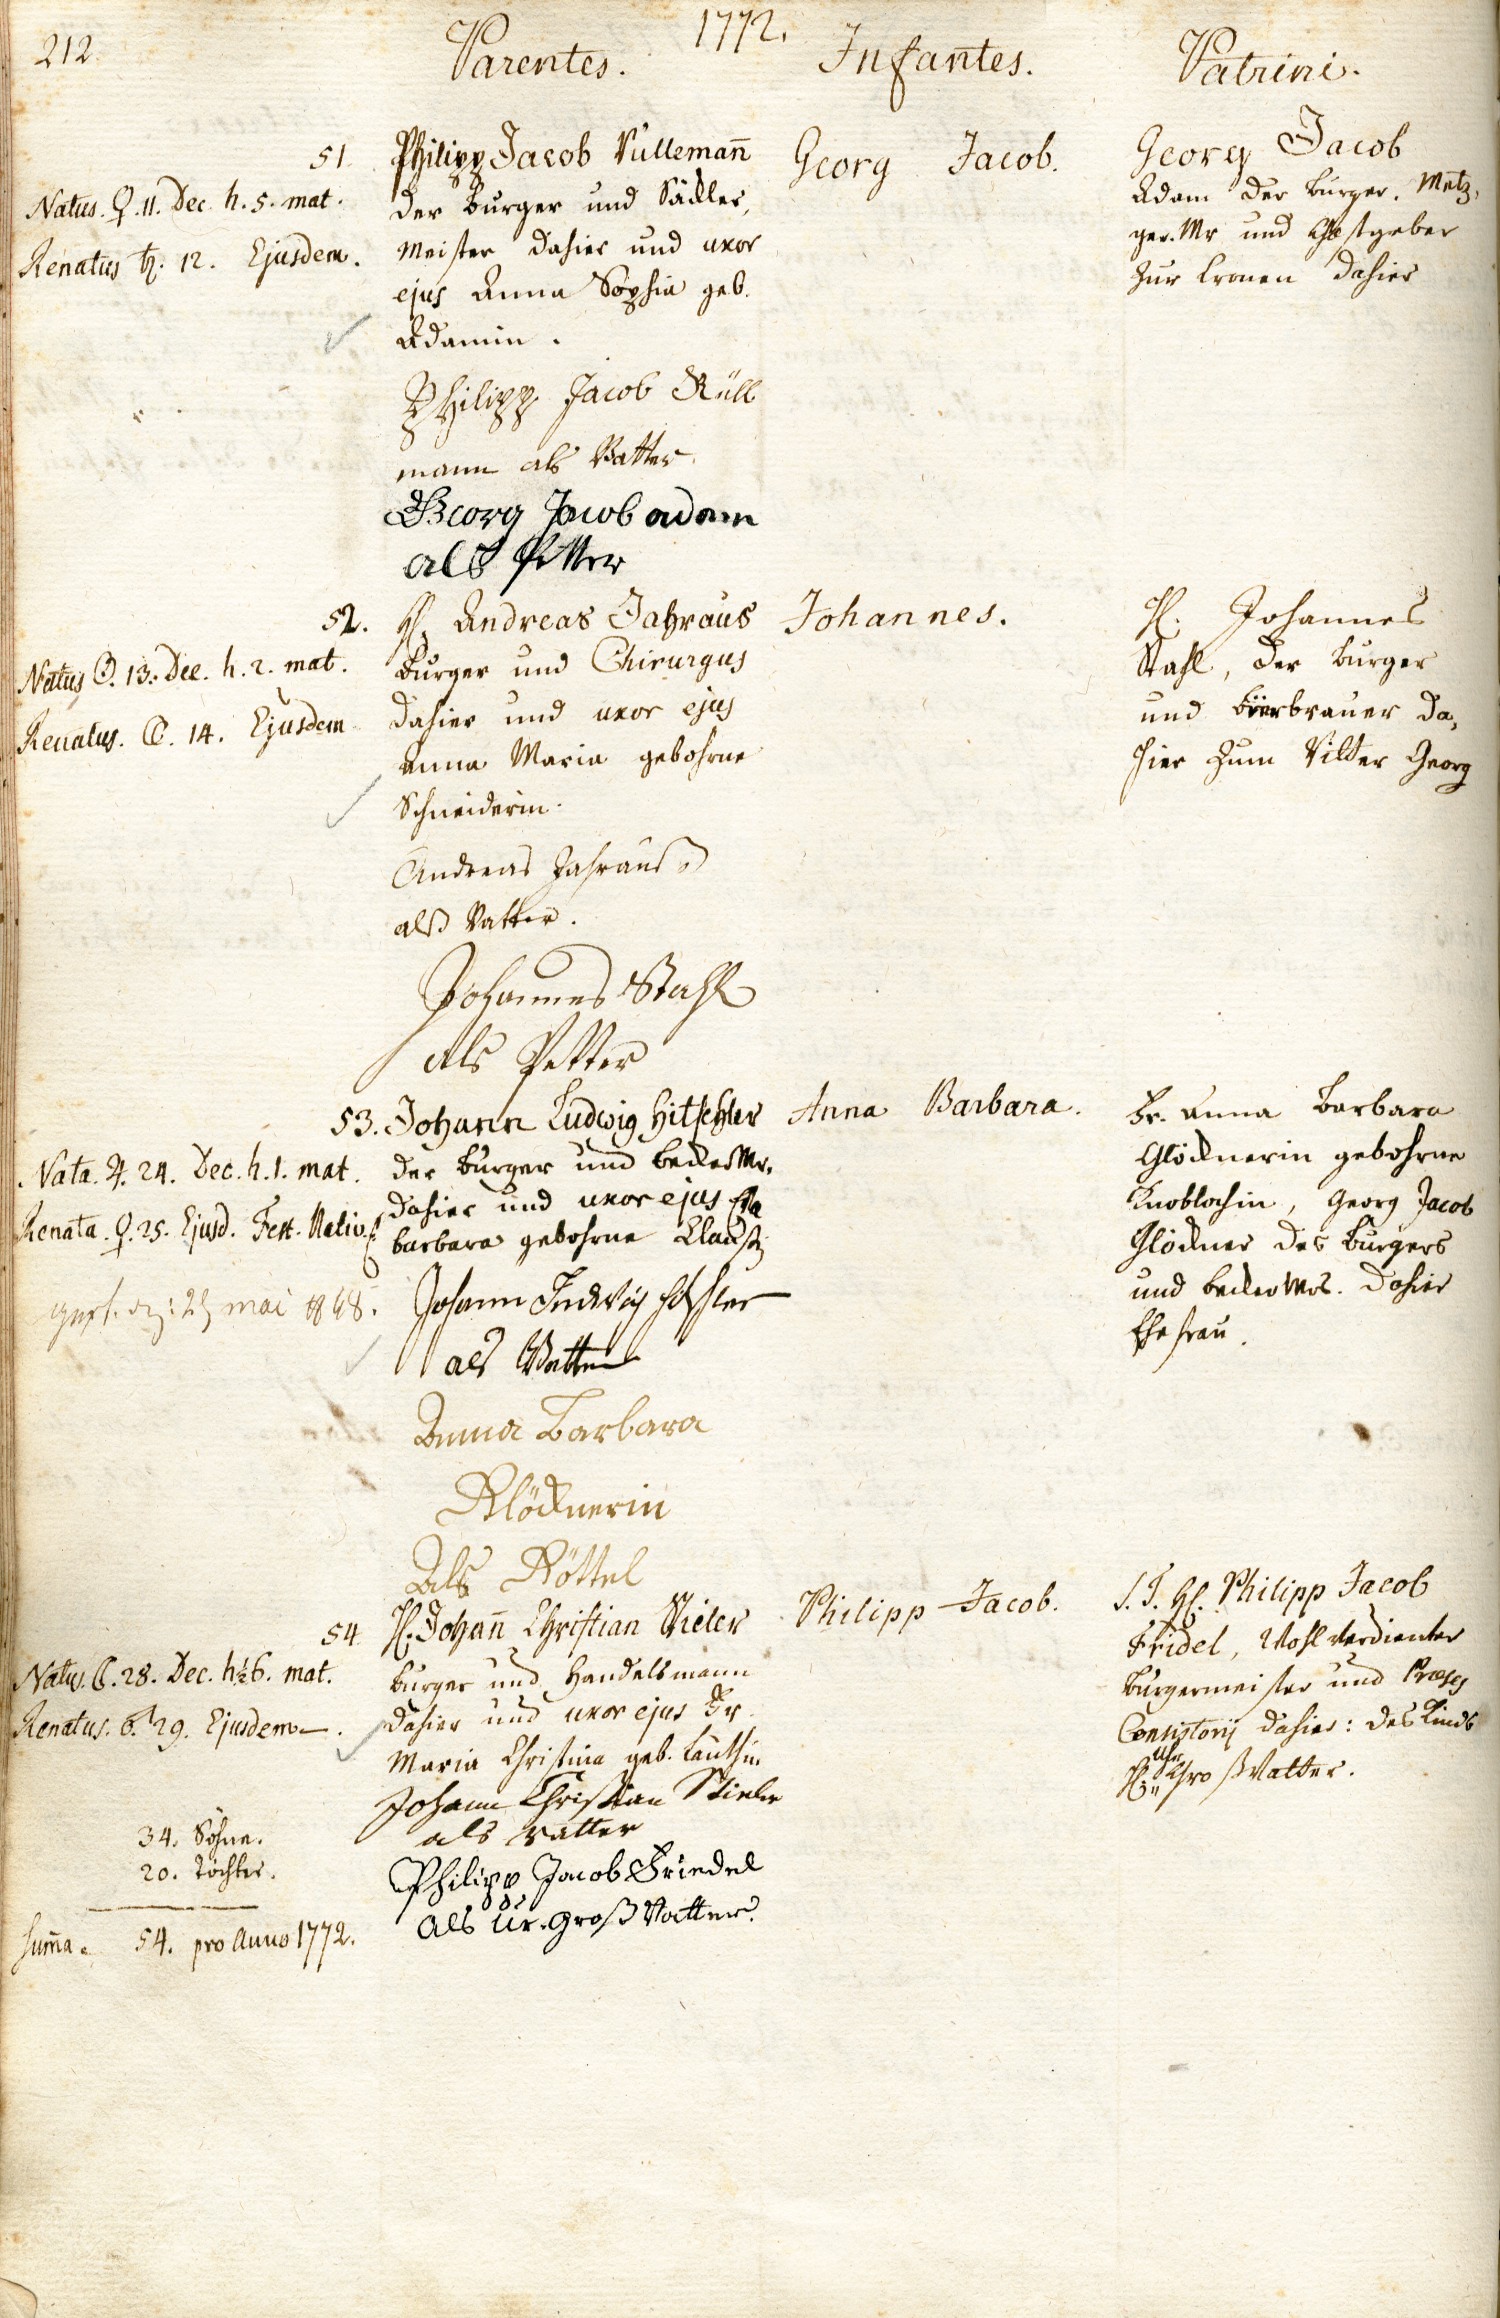 212.
1772.
Parentes.
Infantes.
Patrini.
51.
Natus. ♀. 11. Dec. h. 5. mat.
Renatus ♄. 12. Ejusdem.
Philipp Jacob Rüllemañ
der Burger und Säckler,
meister dahier und uxor
ejus Anna Sophia geb.
Adamin.
Philipp Jacob Rüll
mann als Vatter.
Georg Jacob adam
als Petter
Georg Jacob.
Georg Jacob
Adam der Burger. Metz,
ger. Mr und Gastgeber
zur Cronen dahier
52.
Natus ☉. 13. Dec. h. 2. mat.
Renatus. ☾. 14. Ejusdem
H. Andreas Jahraus
Burger und Chirurgus
dahier und uxor ejus
Anna Maria gebohrne
Schneiderin.
Andreas Jahrauß
alß Vatter.
Johannes Stahl
als Petter
Johannes.
H. Johannes
Stahl, der Burger
und Bierbrauer da,
hier zum Ritter Georg
53.
Nata. ♃. 24. Dec. h. 1. mat.
Renata. ♀. 25. Ejusd. Fest. Nativ.
gest. d. 25 mai 1848.
Johann Ludwig Hitschler
der Burger und beckerMr.
dahier und uxor ejus
barbara gebohrne
Johann Ludwig Hitschler
als Vatter
Anna Barbara
Klöcknerin
Als Göttel
Anna Barbara.
Fr. Anna Barbara
Glöcknerin gebohrne
Knoblochin, Georg Jacob
Glöckner des Burgers
und becker Mrs. dahier
Ehefrau.
54.
Natus. ☾. 28. Dec. h½6. mat.
Renatus. ♂. 29. Ejusdem.
H. Johañ Christian Stieler
Burger und Handelsmann
dahier und uxor ejus Fr.
Maria Christina geb. Lauthin
Johann Christian Stieler
als vatter
Philipp Jacob Friedel
als Ur. Groß Vatter.
Philipp Jacob.
S. T. H. Philipp Jacob
Fridel, Wohlverdienter
Burgermeister und Præses
Consistorij dahier: des Kinds
H. Uhr Groß Vatter.
34. Söhne.
20. Töchter.
Sum̄a. 54. pro Anno 1772.